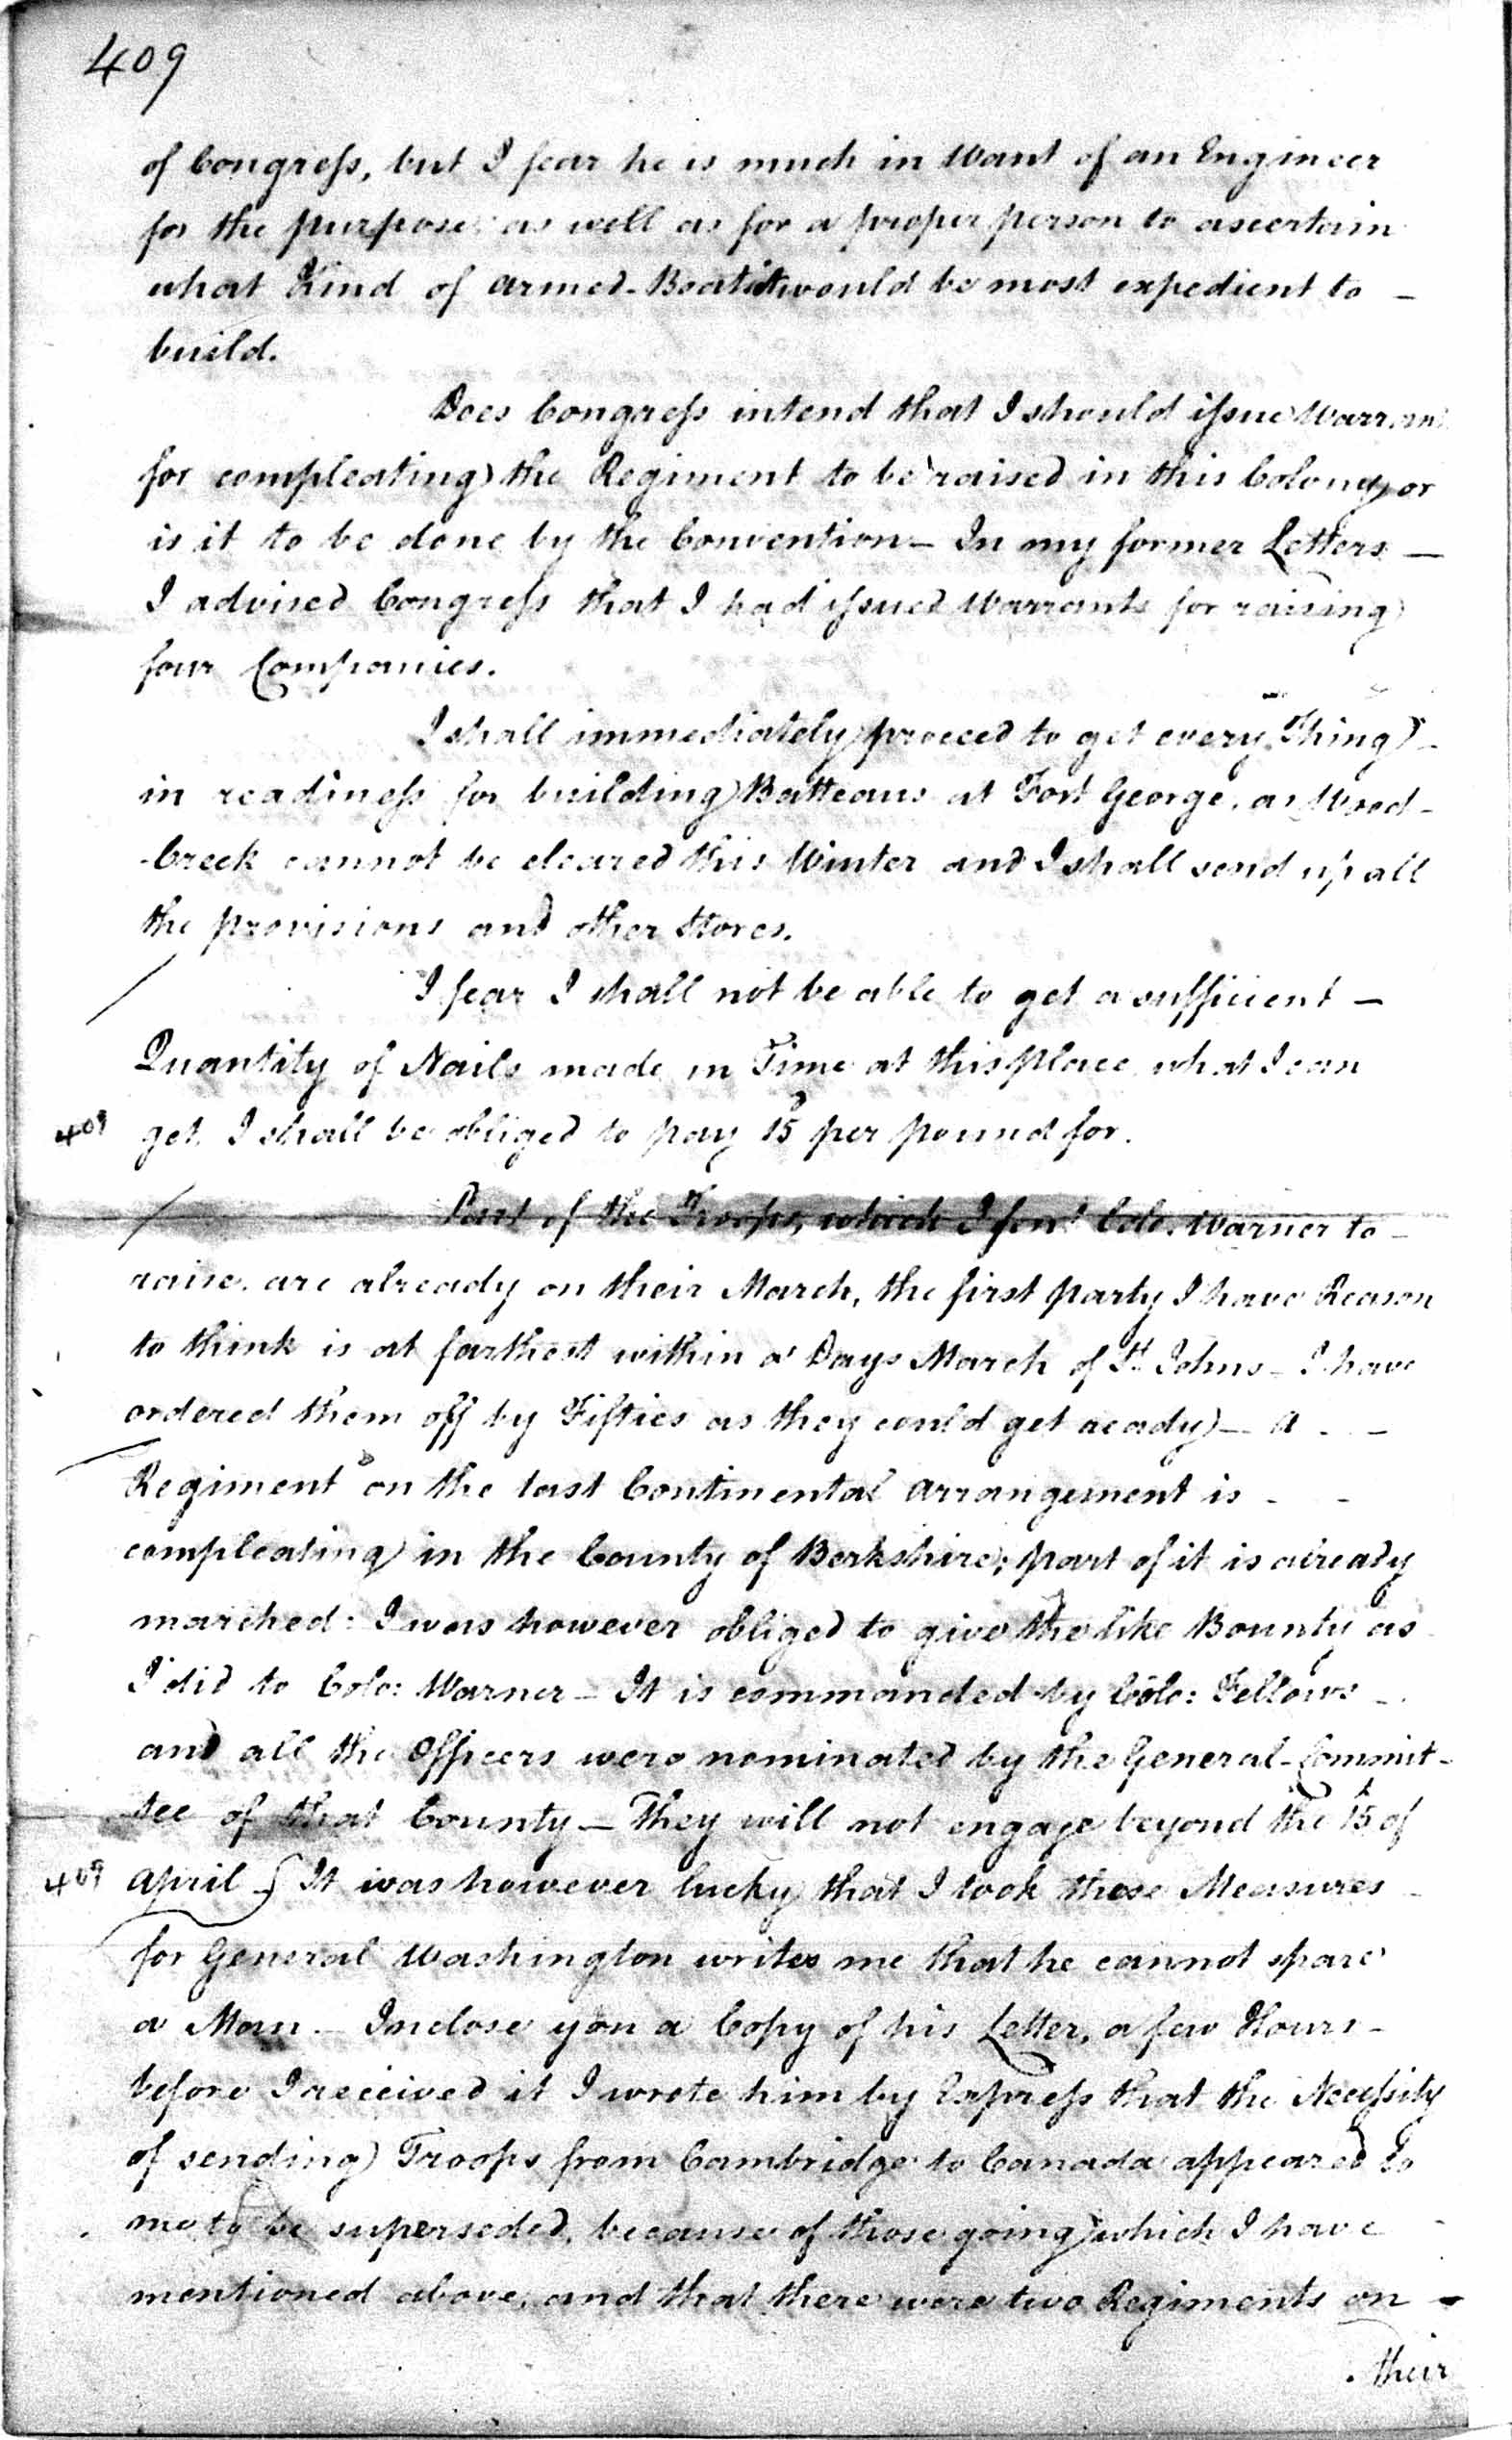 409
of Congress, but I fear he is much in Want of an Engineer
for the purpose: as well as for a proper person to ascertain
what Kind of armed-Boats it would be most expedient to –
build.
Does Congress intend that I should issue Warran
for compleating the Regiment to be raised in this Colony, or
is it to be done by the Convention – In my former Letters –
I advised Congress that I had issued Warrants for raising
four Companies.
I shall immediately proceed to get every Thing –
in readiness for building Batteaus at Fort George, as Wood –
-Creek cannot be cleared this Winter and I shall send up all
the provisions and other Stores.
I fear I shall not be able to get a sufficient –
Quantity of Nails made in Time at this place what I can
409 get I shall be obliged to pay 15 per pound for.
Part of the Troops, which I sent Colo. Warner to –
raise are already on their March, the first party I have Reason
to think is at farthest within a Days March of St Johns – I have
ordered them off by Fifties as they could get ready – A - -
Regiment on the last Continental arrangement is - -
compleating in the County of Berkshire; part of it is already
marched: I was however obliged to give the like Bounty as
I did to Colo: Warner – It is commanded by Colo: Fellows –
and all the Officers were nominated by the General-Commit-
-tee of that County – They will not engage beyond the 15 of
409 April – It was however lucky that I took these Measures –
for General Washington writes me that he cannot spare
a Man – Inclose you a Copy of his Letter, a few Hours –
before I received it I wrote him by Express that the Necessity
of sending Troops from Cambridge to Canada appeared to
me to be superseded, because of those going which I have
mentioned above, and that there were two Regiments on –
their